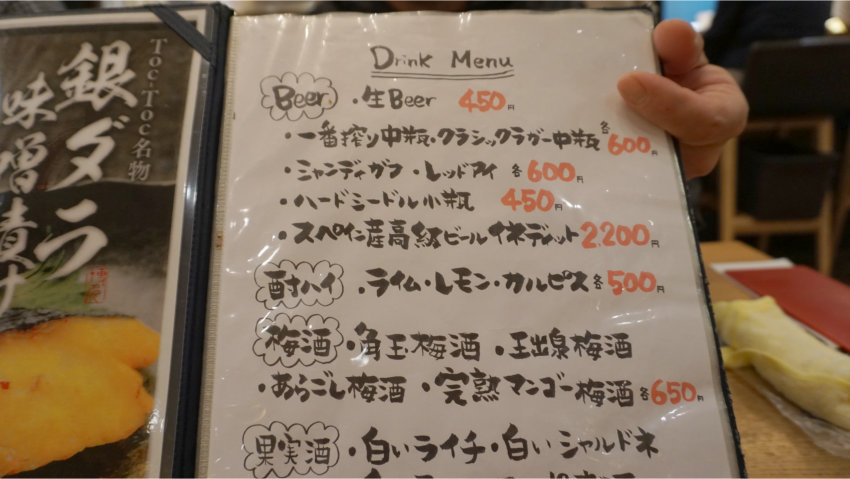 Toc-Toc名物
銀ダラ
味噌漬け
Drink Menu
Beer ・生Beer 450円
・一番搾り中瓶・クラシックラガー中瓶 各600円
・シャンディガフ・レッドアイ 各600円
・ハードシードル小瓶 450円
・スペイン産高級ビール イネディット 2,200円
酎ハイ ・ライム・レモン・カルピス 各500円
梅酒 ・角玉梅酒 ・王出泉梅酒
・あらごし梅酒 ・完熟マンゴー梅酒 各650円
果実酒 ・白いライチ・白いシャルドネ